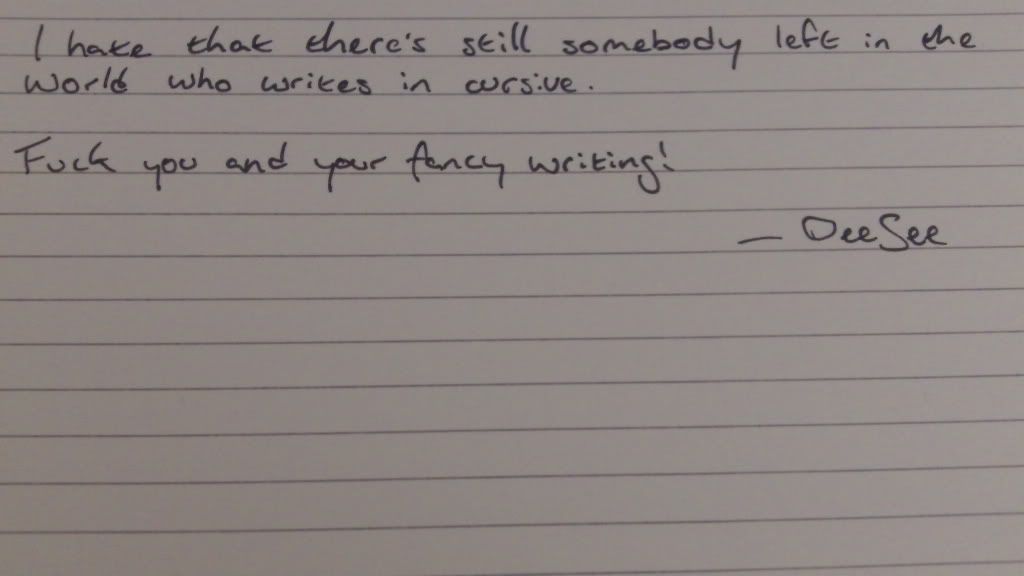 I hate that there's still somebody left in the
world who writes in cursive.
Fuck you and your fancy writing!
— DeeSee